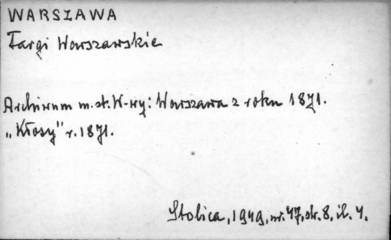 WARSZAWA
Targi Warszawskie
Archiwum m.st. W-wy: Warszawa z roku 1871.
„Kłosy" r. 1871.
Stolica, 1949, nr. 47, str. 8, il. 4.